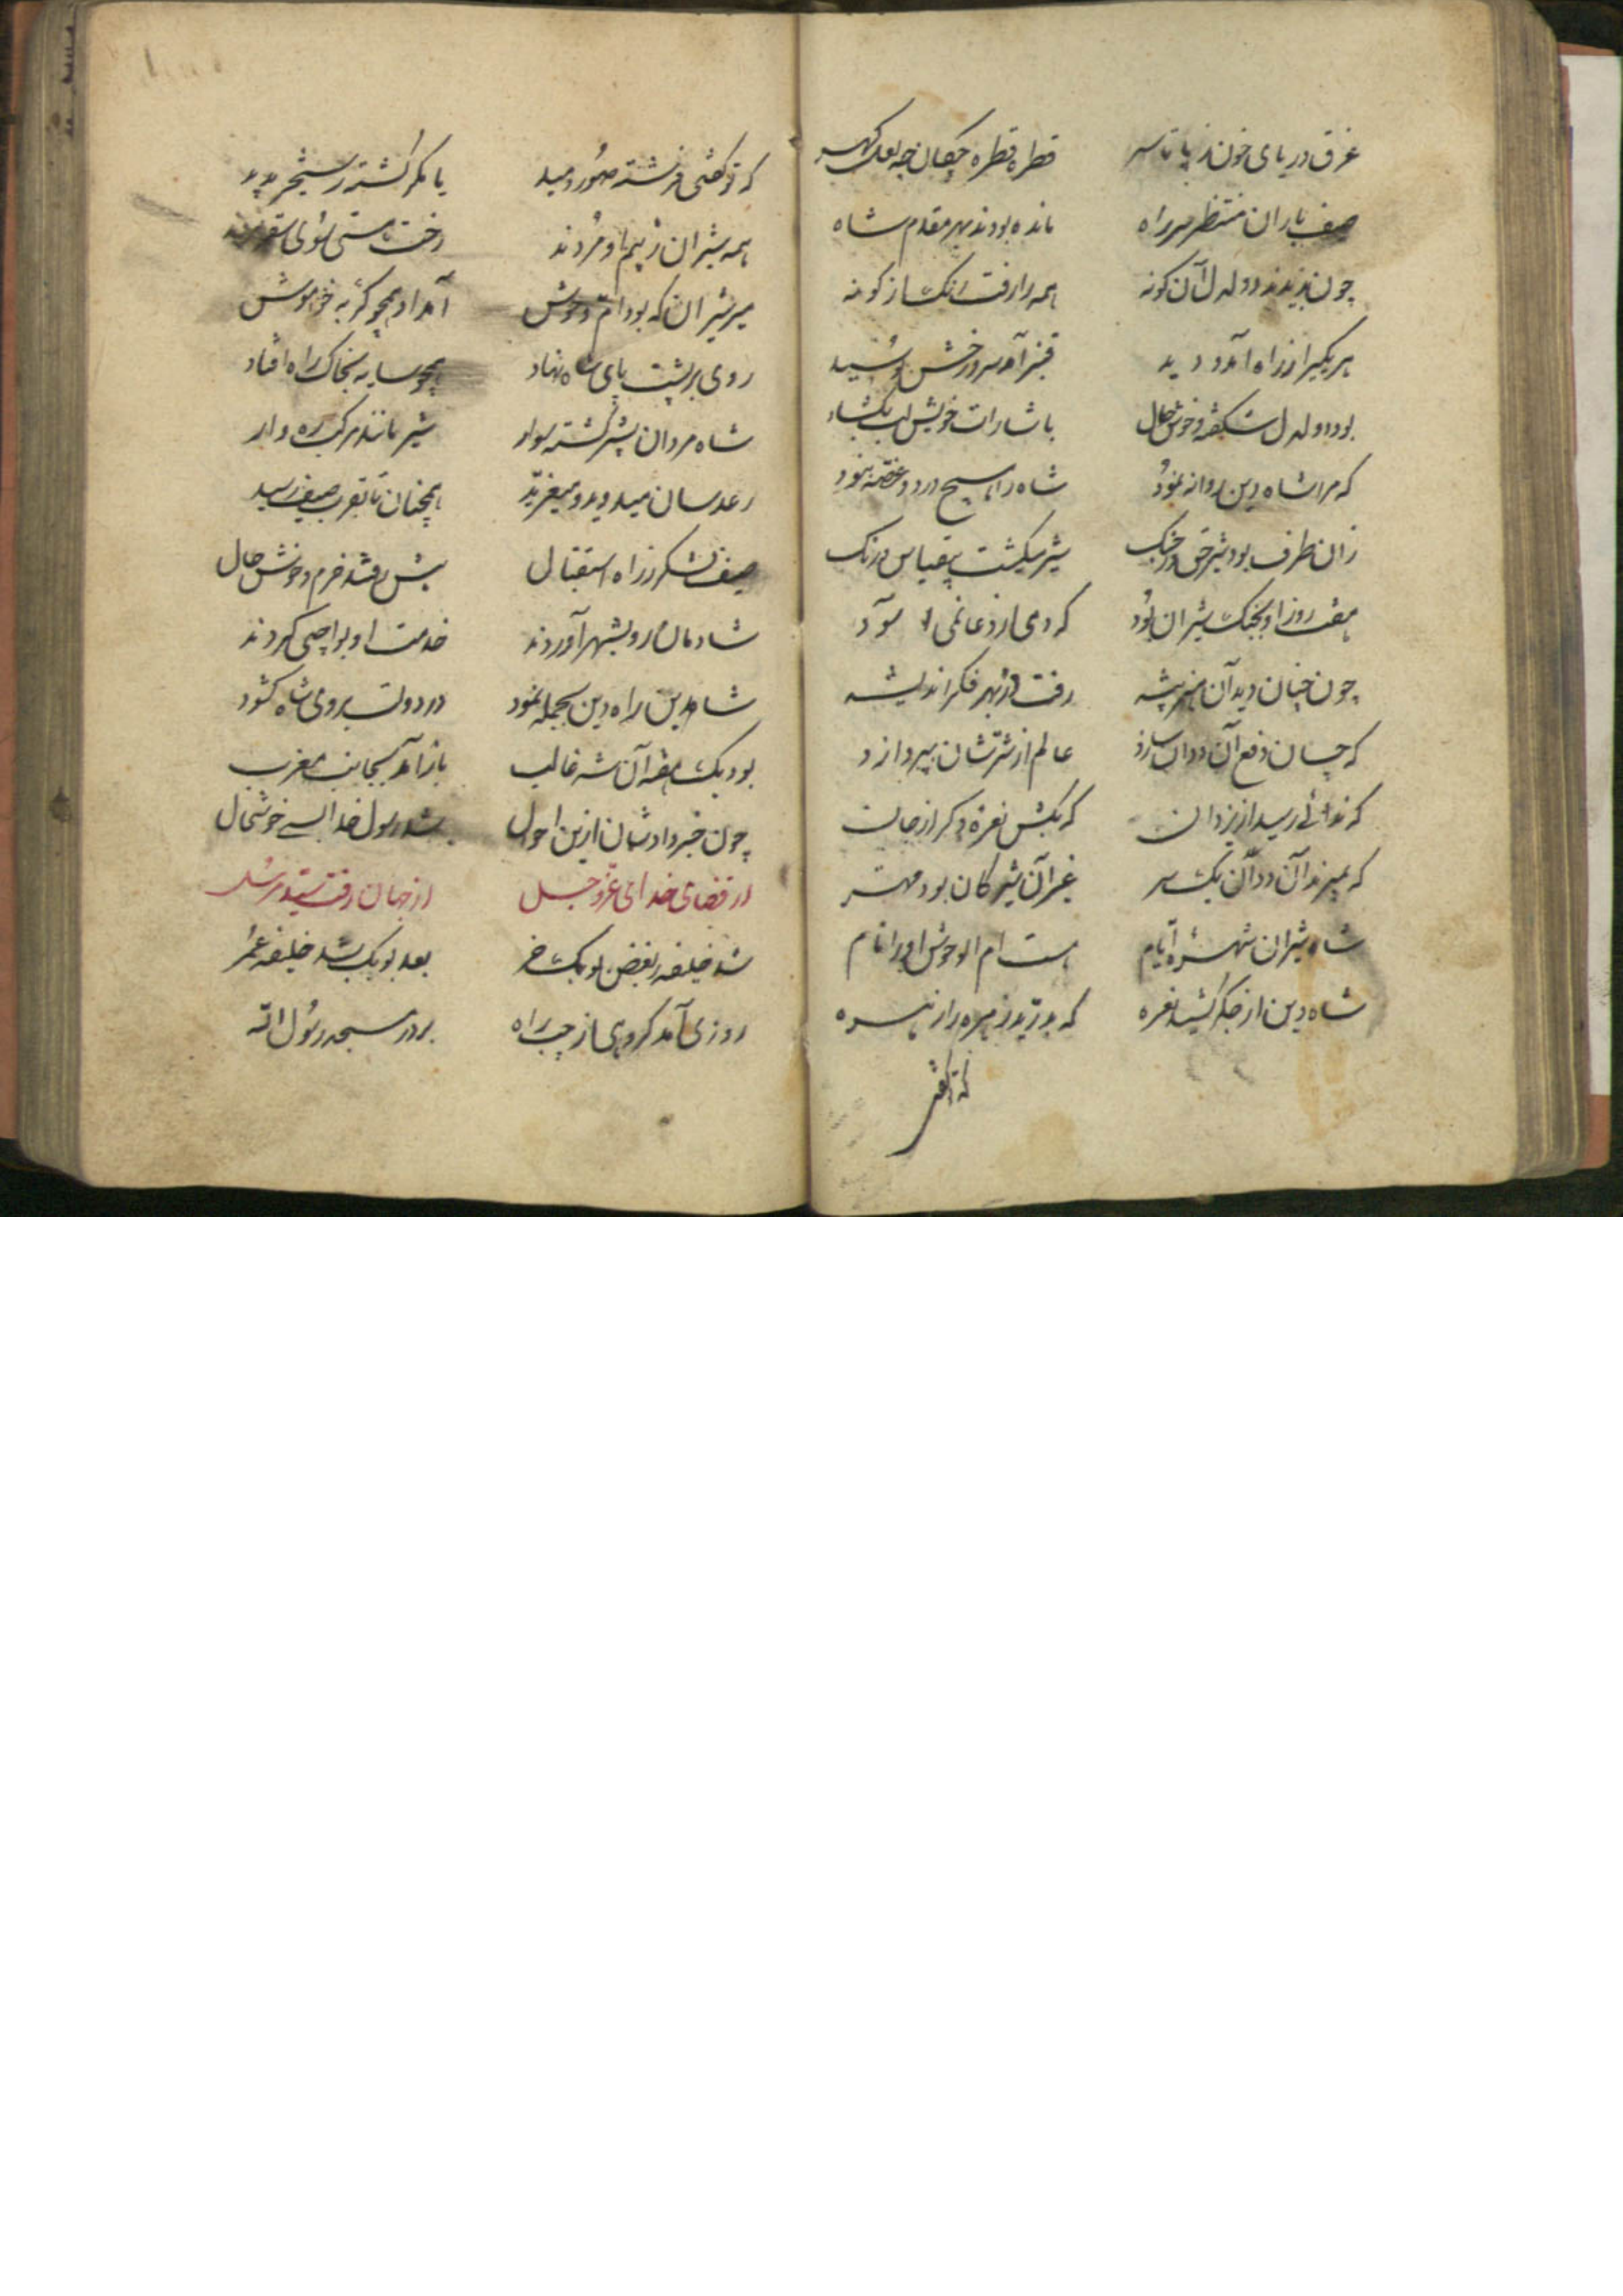 غرق دریای خون ز پا تا سر قطره قطره چکان چه لعل گهر
صف یاران منتظر سر راه مانده بودند بهر مقدم شاه
چون بدیدند دولدل آن کونه همه را رفت رنک از کونه
هر یکی را ز راه آمد دید قنبر آمد سر و رخش بوسید
بود دولدل شکفته و خوش حال باشارات خویش لب بکشاد
که مرا شاه دین روانه نمود شاه را هیچ درد و غصه نبود
زان طرف بود شیر حق در جنک شیر میکشت بیقیاس و درنک
هفت روز او بجنک شیران بود که دمی از دغا نمی‌آسود
چون چنان دید آن هنر پیشه رفت در بهر فکر اندیشه
که چسان دفع آن ددان سازد عالم از شرشان بپردازد
که ندائی رسید از یزدان که بکش نعره دکر از جان
که بمیرند آن ددان یک سر غیر آن شیر کان بود مهتر
شاه شیران شهره ایام هست ام الوحوش او را نام
شاه دین از جکر کشید نعره که بدرید زهره را زهره
که تو کفتی فرشته صور دمید یا مکر کشته رستخیز پدید
همه شیران ز بیم او مردند رخت هستی سوی سقر بردند
میر شیران که بود ام وحوش آمد او همچو کربه خواموش
روی بر پشت پای شاه نهاد همچو سایه بخاک راه افتاد
شاه مردان بشیر کشته سوار شیر مانند مرکب رهوار
رعد سان میدوید و میغرید همچنان تا بقرب صف رسید
صف لشکر ز راه استقبال پیش رفتند خرم و خوش حال
شادمان رو بشهر آوردند خدمت او بواجبی کردند
شاه دین راه دین بجمله نمود در دولت بروی شاه کشود
بود یک هفته آن شه غالب باز آمد بجانب مغرب
چون خبر داد شان ازین احوال شد رسول خدا بسی خوشحال
از قضای خدای عز و جل از جهان رفت سید مرسل
شد خلیفه ببغض بوبکر خر بعد بوبکر شد خلیفه عمر
روزی آمد کروهی از چپ راه بر در مسجد رسول الله